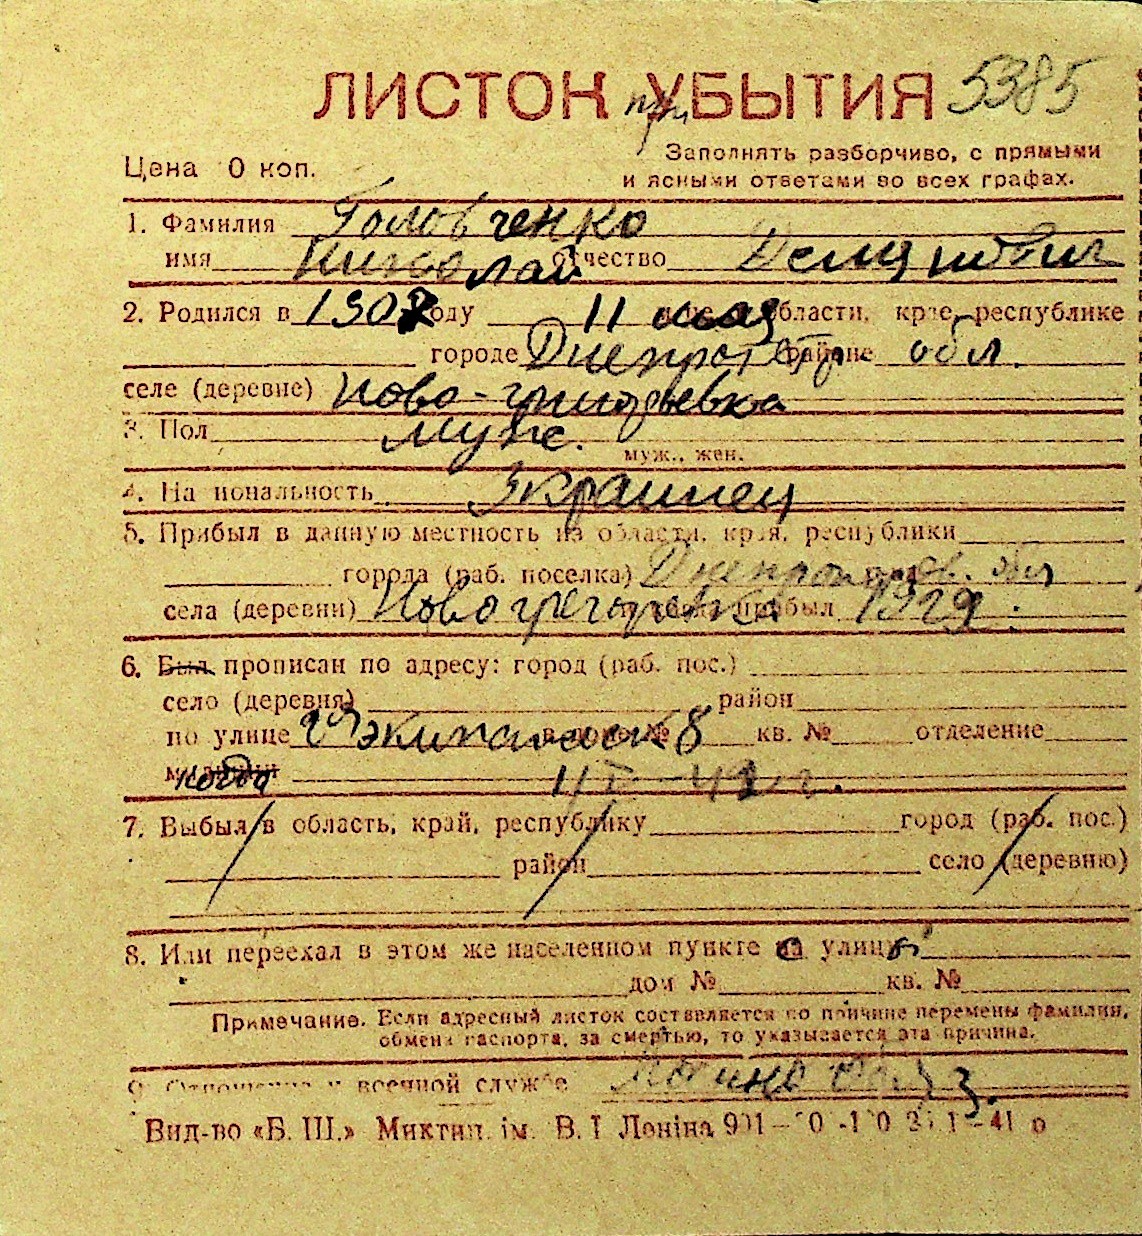 ЛИСТОК при УБЫТИЯ 5385
Цена 0 коп.
Заполнять разборчиво, с прямыми
и ясными ответами во всех графах.
1. Фамилия Головченко
имя Николай отчество Демидович
2. Родился в 1907 году 11 мая области, крае, республике
городе Днепропетр районе обл.
селе (деревне) Ново-григорьевка
3. Пол муж.
муж., жен.
4. Национальность Украинец
5. Прибыл в данную местность из области, края, республики
города (раб. поселка) обл
села (деревни) прибыл 1929.
6. Был прописан по адресу: город (раб. пос.)
село (деревня) район
по улице 8 кв. № отделение
когда
7. Выбыл в область, край, республику город (раб. пос.)
район село (деревню)
8. Или переехал в этом же населенном пункте с улицы
дом № кв. №
Примечание. Если адресный листок составляется по причине перемены фамилии,
обмена паспорта, за смертью, то указывается эта причина.
9. Отношение к военной службе
Вид-во «Б. Ш.» Миктип. ім. В. І Леніна